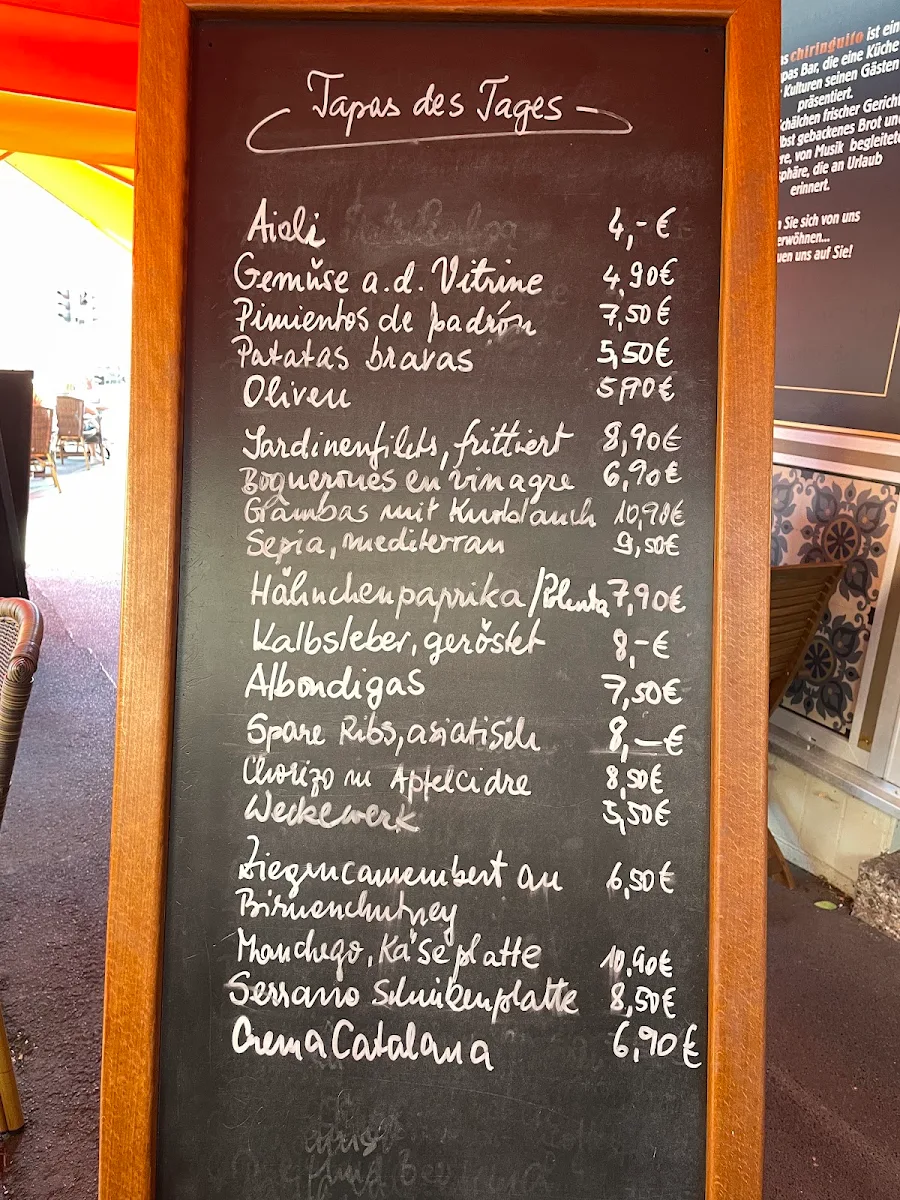 Tapas des Tages
Aioli 4,-€
Gemüse a.d. Vitrine 4,90€
Pimientos de padrón 7,50€
Patatas bravas 5,50€
Oliven 5,90€
Sardinenfilets, frittiert 8,90€
Boquerones en vinagre 6,90€
Gambas mit Knoblauch 10,90€
Sepia, mediterran 9,50€
Hähnchenpaprika/Polenta 7,90€
Kalbsleber, geröstet 8,-€
Albondigas 7,50€
Spare Ribs, asiatisch 8,-€
Chorizo in Apfelcidre 8,50€
Weckewerk 5,50€
Ziegencamembert an 6,50€
Birnenchutney
Manchego, Käseplatte 10,90€
Serrano Schinkenplatte 8,50€
Crema Catalana 6,90€
chiringuito ist ein
Bar, die eine Küche
Kulturen seinen Gästen
präsentiert.
frischer
gebackenes Brot
von Musik
die an Urlaub
erinnert.
Sie sich von uns
uns auf Sie!